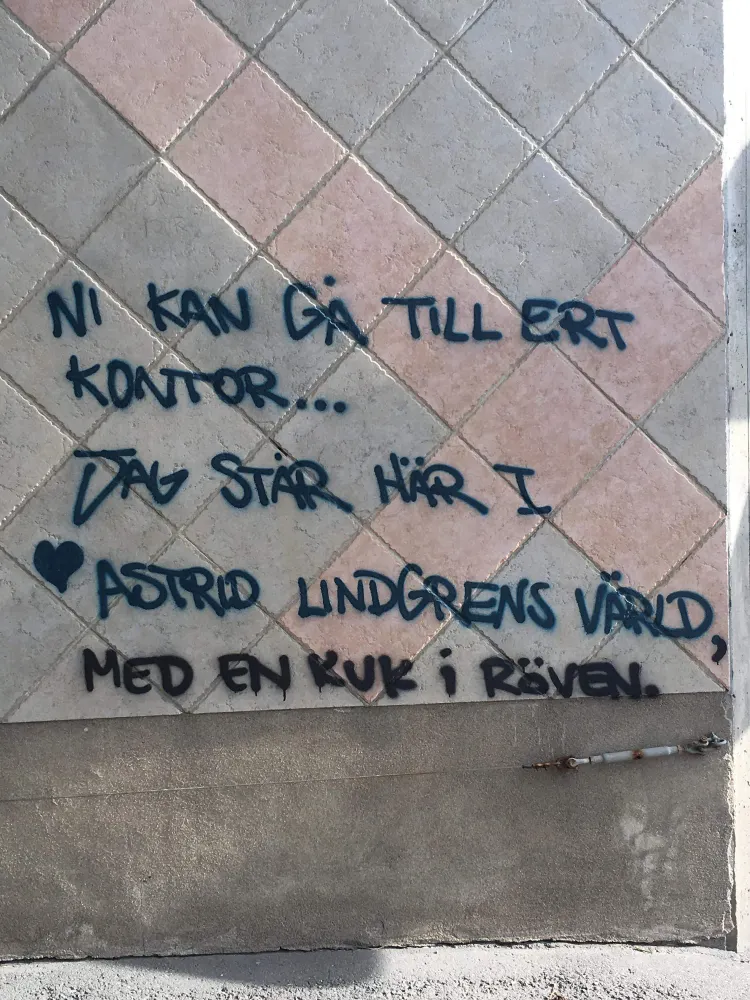 NI KAN GÅ TILL ERT
KONTOR...
JAG STÅR HÄR I
♥ ASTRID LINDGRENS VÄRLD,
MED EN KUK i RÖVEN.